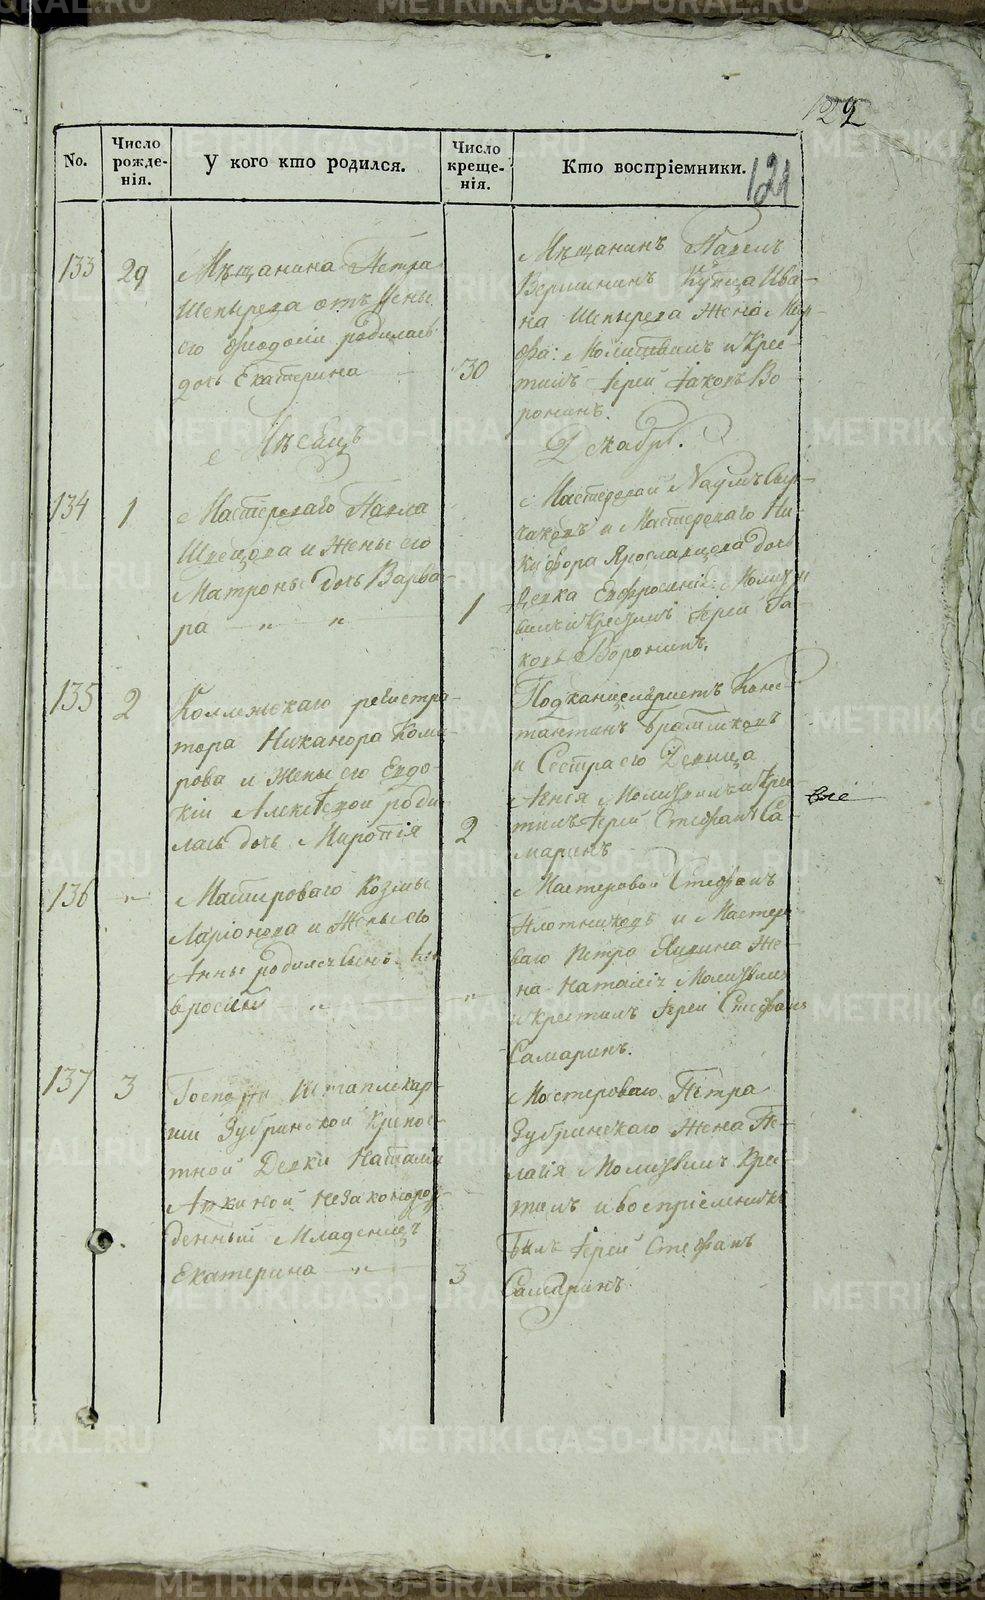 122
121
No.
Число рожденія.
У кого кто родился.
Число крещенія.
Кто воспріемники.
133
29
Мѣщанина Петра
Шепырева отъ жены
его Феодосіи родилась
дочь Екатерина
30
Мѣщанинъ Павелъ
Вершининъ Купца Ива-
на Шепырева жена Мар-
фа: Молитвилъ и Крес-
тилъ Іерей Іаковъ Во-
ронинъ.
Мѣсяцъ
Декабрь.
134
1
Мастероваго Павла
Швецова и жены его
Матроны дочь Варва-
ра — „ — „ —
1
Мастеровой Наумъ
и Мастероваго Ни-
кифора Ярославцова дочь
Девка Евфросинія: Молит
вилъ и Крестилъ Іерей Іа-
ковъ Воронинъ.
135
2
Коллежскаго регистра-
тора Никанора Кома
рова и жены его Евдо-
кіи Алексѣевой роди-
лась дочь Миропія
2
Подканцеляристъ Конс-
тантинъ
и Сестра его Девица
Молитвилъ и Крес-
тилъ Іерей Стефанъ Са-
маринъ
136
„
Мастероваго Козмы
Ларіонова и жены его
Анны родился сынъ Ам
вросій — „ —
„
Мастеровой Стефанъ
Плотниковъ и Мастеро
ваго Петра жe-
на Наталія Молитвилъ
и крестилъ Іерей Стефанъ
Самаринъ.
137
3
Госпожи Шталлекар-
ши Зубринской Крепос-
тной Девки Наталіи
незаконорож
денный Младенецъ
Екатерина — „ —
3
Мастероваго Петра
Зубринскаго жена Пе-
лагія Молитвилъ Крес
тилъ и воспріемникъ
былъ Іерей Стефанъ
Самаринъ.
METRIKI.GASO-URAL.RU